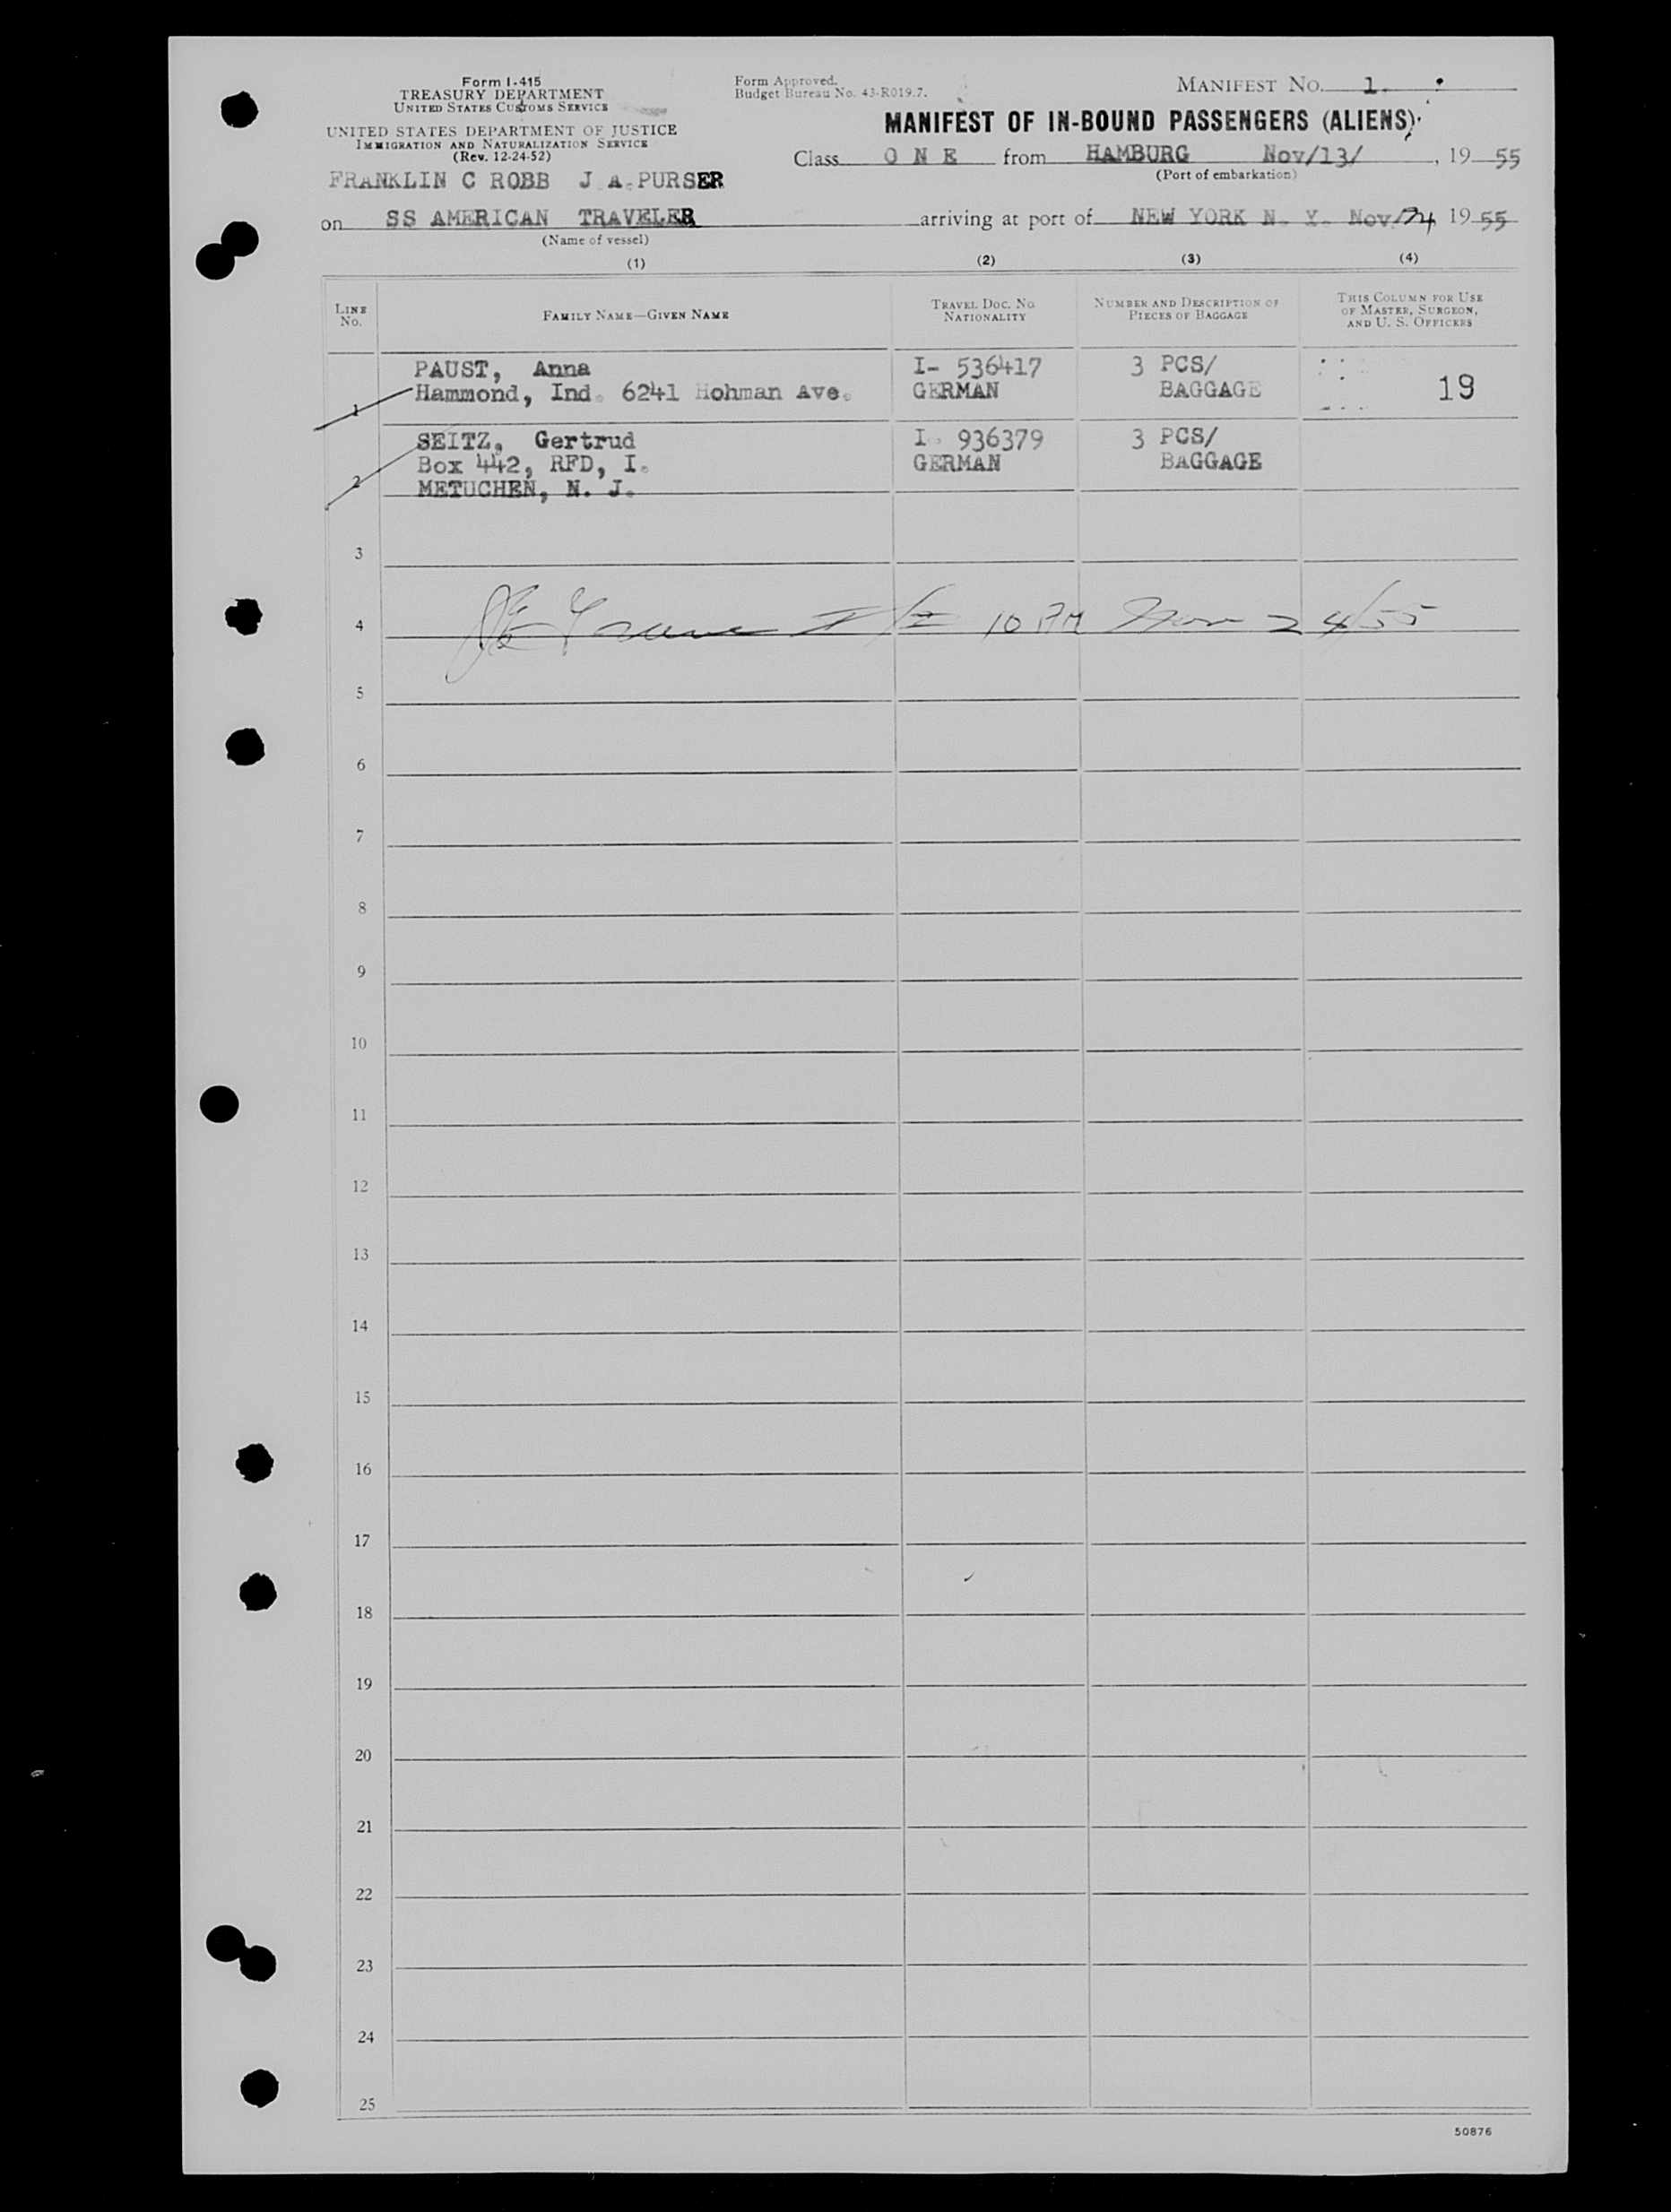 Form I-415
TREASURY DEPARTMENT
UNITED STATES CUSTOMS SERVICE
UNITED STATES DEPARTMENT OF JUSTICE
IMMIGRATION AND NATURALIZATION SERVICE
(Rev. 12-24-52)
Form Approved.
Budget Bureau No. 43-R019.7.
MANIFEST NO. 1
MANIFEST OF IN-BOUND PASSENGERS (ALIENS)
Class O N E from HAMBURG Nov/13/, 19 55
(Port of embarkation)
FRANKLIN C ROBB J A. PURSER
on SS AMERICAN TRAVELER arriving at port of NEW YORK N. Y. Nov/24 19 55
(Name of vessel)
(1) (2) (3) (4)
LINE NO.
FAMILY NAME—GIVEN NAME
TRAVEL DOC. NO.
NATIONALITY
NUMBER AND DESCRIPTION OF
PIECES OF BAGGAGE
THIS COLUMN FOR USE
OF MASTER, SURGEON,
AND U. S. OFFICERS
PAUST, Anna I- 536417 3 PCS/
1 Hammond, Ind. 6241 Hohman Ave. GERMAN BAGGAGE 19
SEITZ, Gertrud I- 936379 3 PCS/
Box 442, RFD, I. GERMAN BAGGAGE
2 METUCHEN, N. J.
3
4 10 PM Nov 24/55
5
6
7
8
9
10
11
12
13
14
15
16
17
18
19
20
21
22
23
24
25
50876